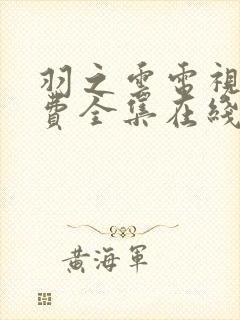 羽之雲電視
費全集在綫
黃海軍